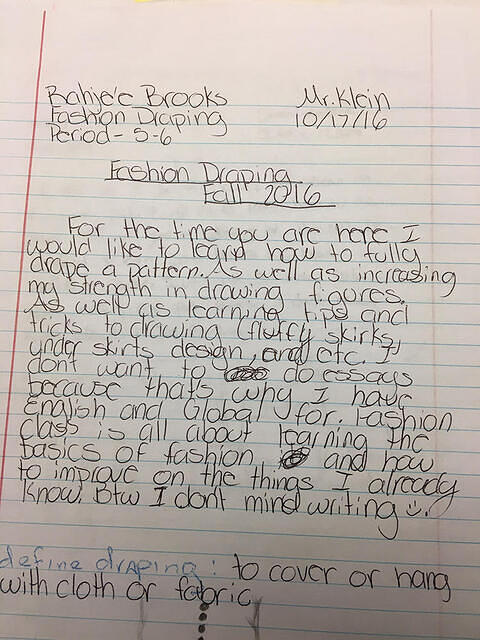 Bahje'e Brooks Mr. Klein
Fashion Draping 10/17/16
Period - 5-6
Fashion Draping
Fall 2016
For the time you are here I
would like to learn how to fully
drape a pattern. As well as increasing
my strength in drawing figures.
As well as learning tips and
tricks to drawing (fluffy skirks,
under skirts design, and etc. I
dont want to do essays
because thats why I have
English and Global for. Fashion
class is all about learning the
basics of fashion and how
to improve on the things I already
know. btw I dont mind writing :).
define draping: to cover or hang
with cloth or fabric